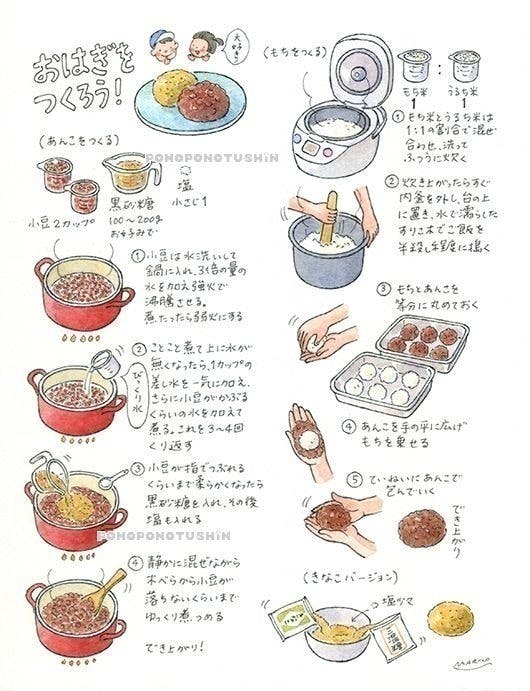 おはぎを
つくろう!
大好き♪
(あんこをつくる)
PONOPONOTUSHiN
小豆2カップ
黒砂糖
100〜200g
お好みで
塩
小さじ1
① 小豆は水洗いして
鍋に入れ、3倍の量の
水を加え強火で
沸騰させる。
煮たったら弱火にする
② ことこと煮て上に水が
無くなったら、1カップの
差し水を一気に加え、
さらに小豆がかぶる
くらいの水を加えて
煮る。これを3〜4回
くり返す
びっくり水
③ 小豆が指でつぶれる
くらいまで柔らかくなったら
黒砂糖を入れ、その後
塩も入れる
PONOPONOTUSHiN
④ 静かに混ぜながら
木べらから小豆が
落ちないくらいまで
ゆっくり煮つめる
でき上がり!
(もちをつくる)
もち米
:
うるち米
① もち米とうるち米は
1:1の割合で混ぜ
合わせ、洗って
ふつうに炊く
② 炊き上がったらすぐ
内釜を外し、台の上
に置き、水で濡らした
すりこ木でご飯を
半殺し程度に搗く
③ もちとあんこを
等分に丸めておく
④ あんこを手の平に広げ
もちを乗せる
⑤ ていねいにあんこで
包んでいく
でき上がり
(きなこバージョン)
塩少々
きなこ
三温糖
MARICO